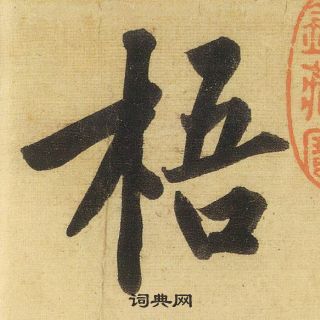 梧
词典网